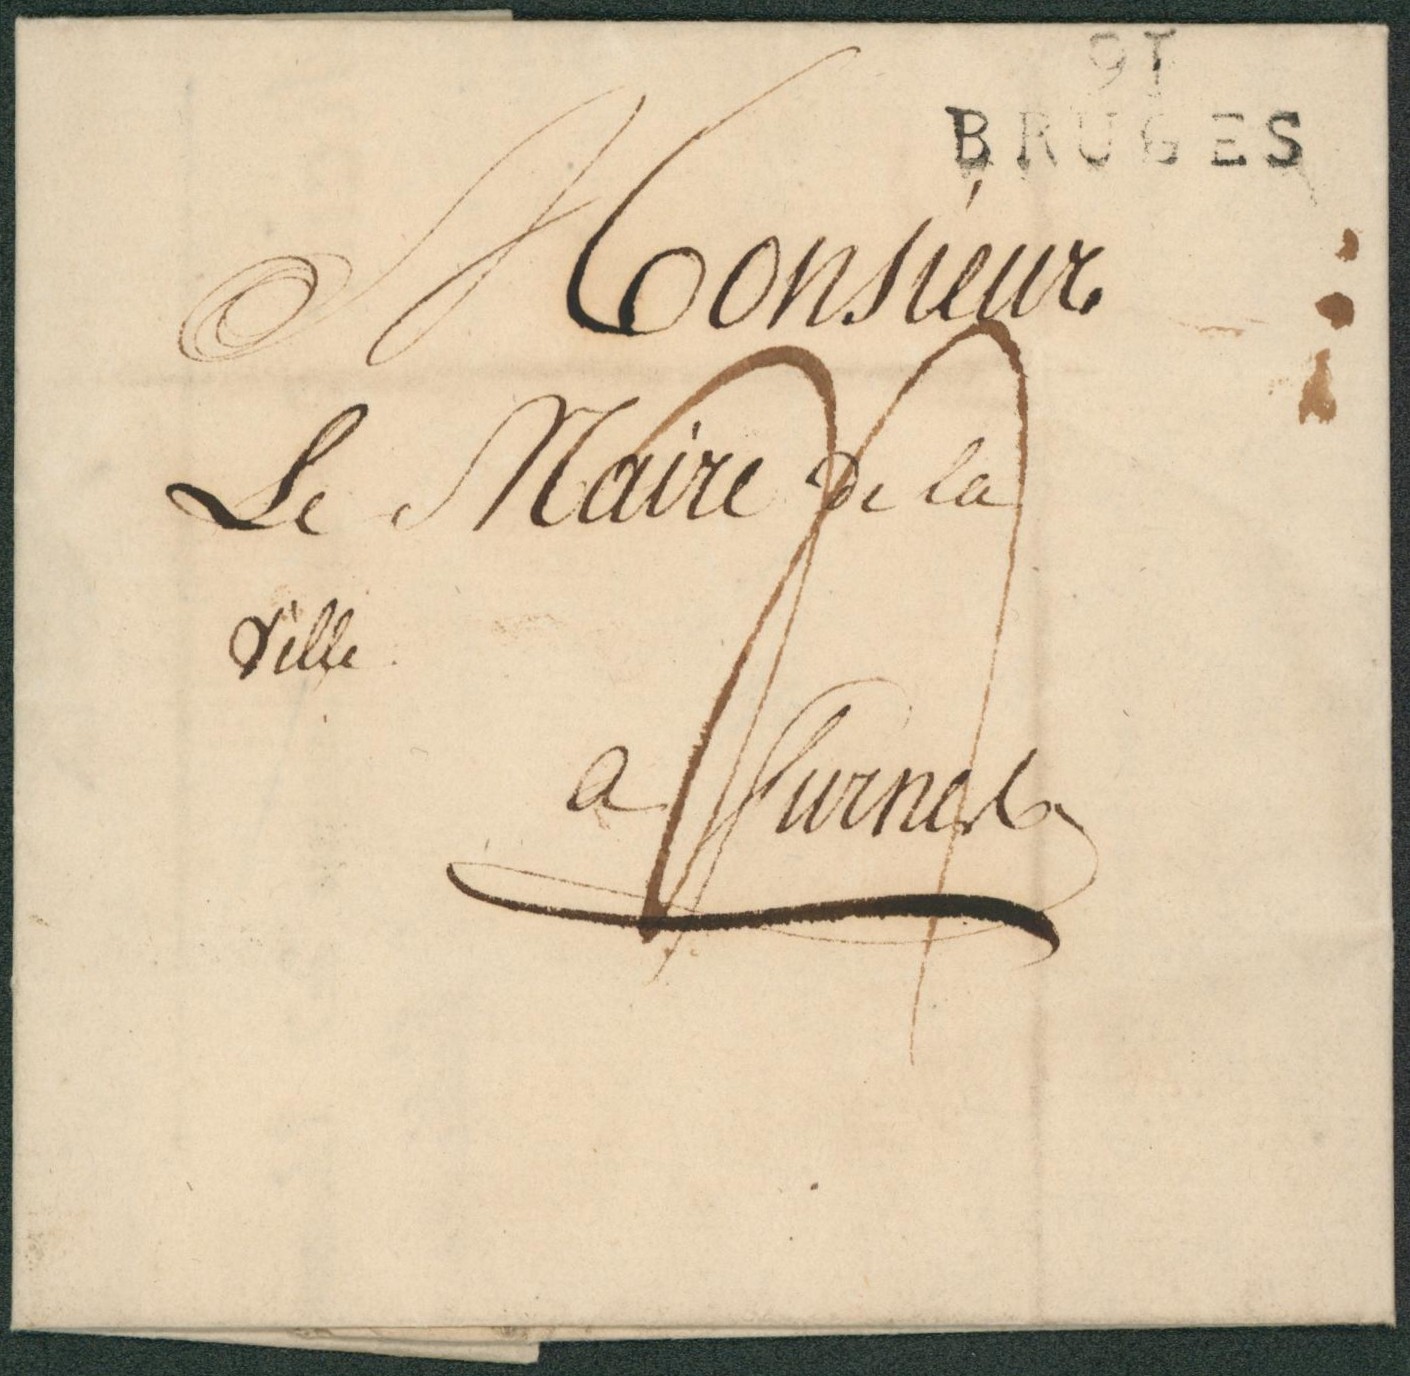 91
BRUGES
Monsieur
Le Maire de la
Ville
a furnes